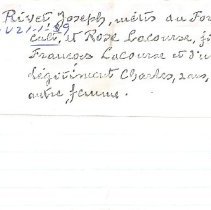 Rivet Joseph, métis du For
V21.1.89
cult, et Rose Lacourse, fi
François Lacourse et d'u
légitiment Charles, 2 ans,
autre femme.